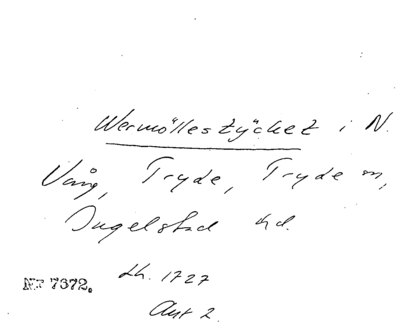 Wermöllestÿcket i N.
Vång, Tryde, Tryde m,
Ingelstad hd.
Lh. 1727
Akt 2
No 7372.